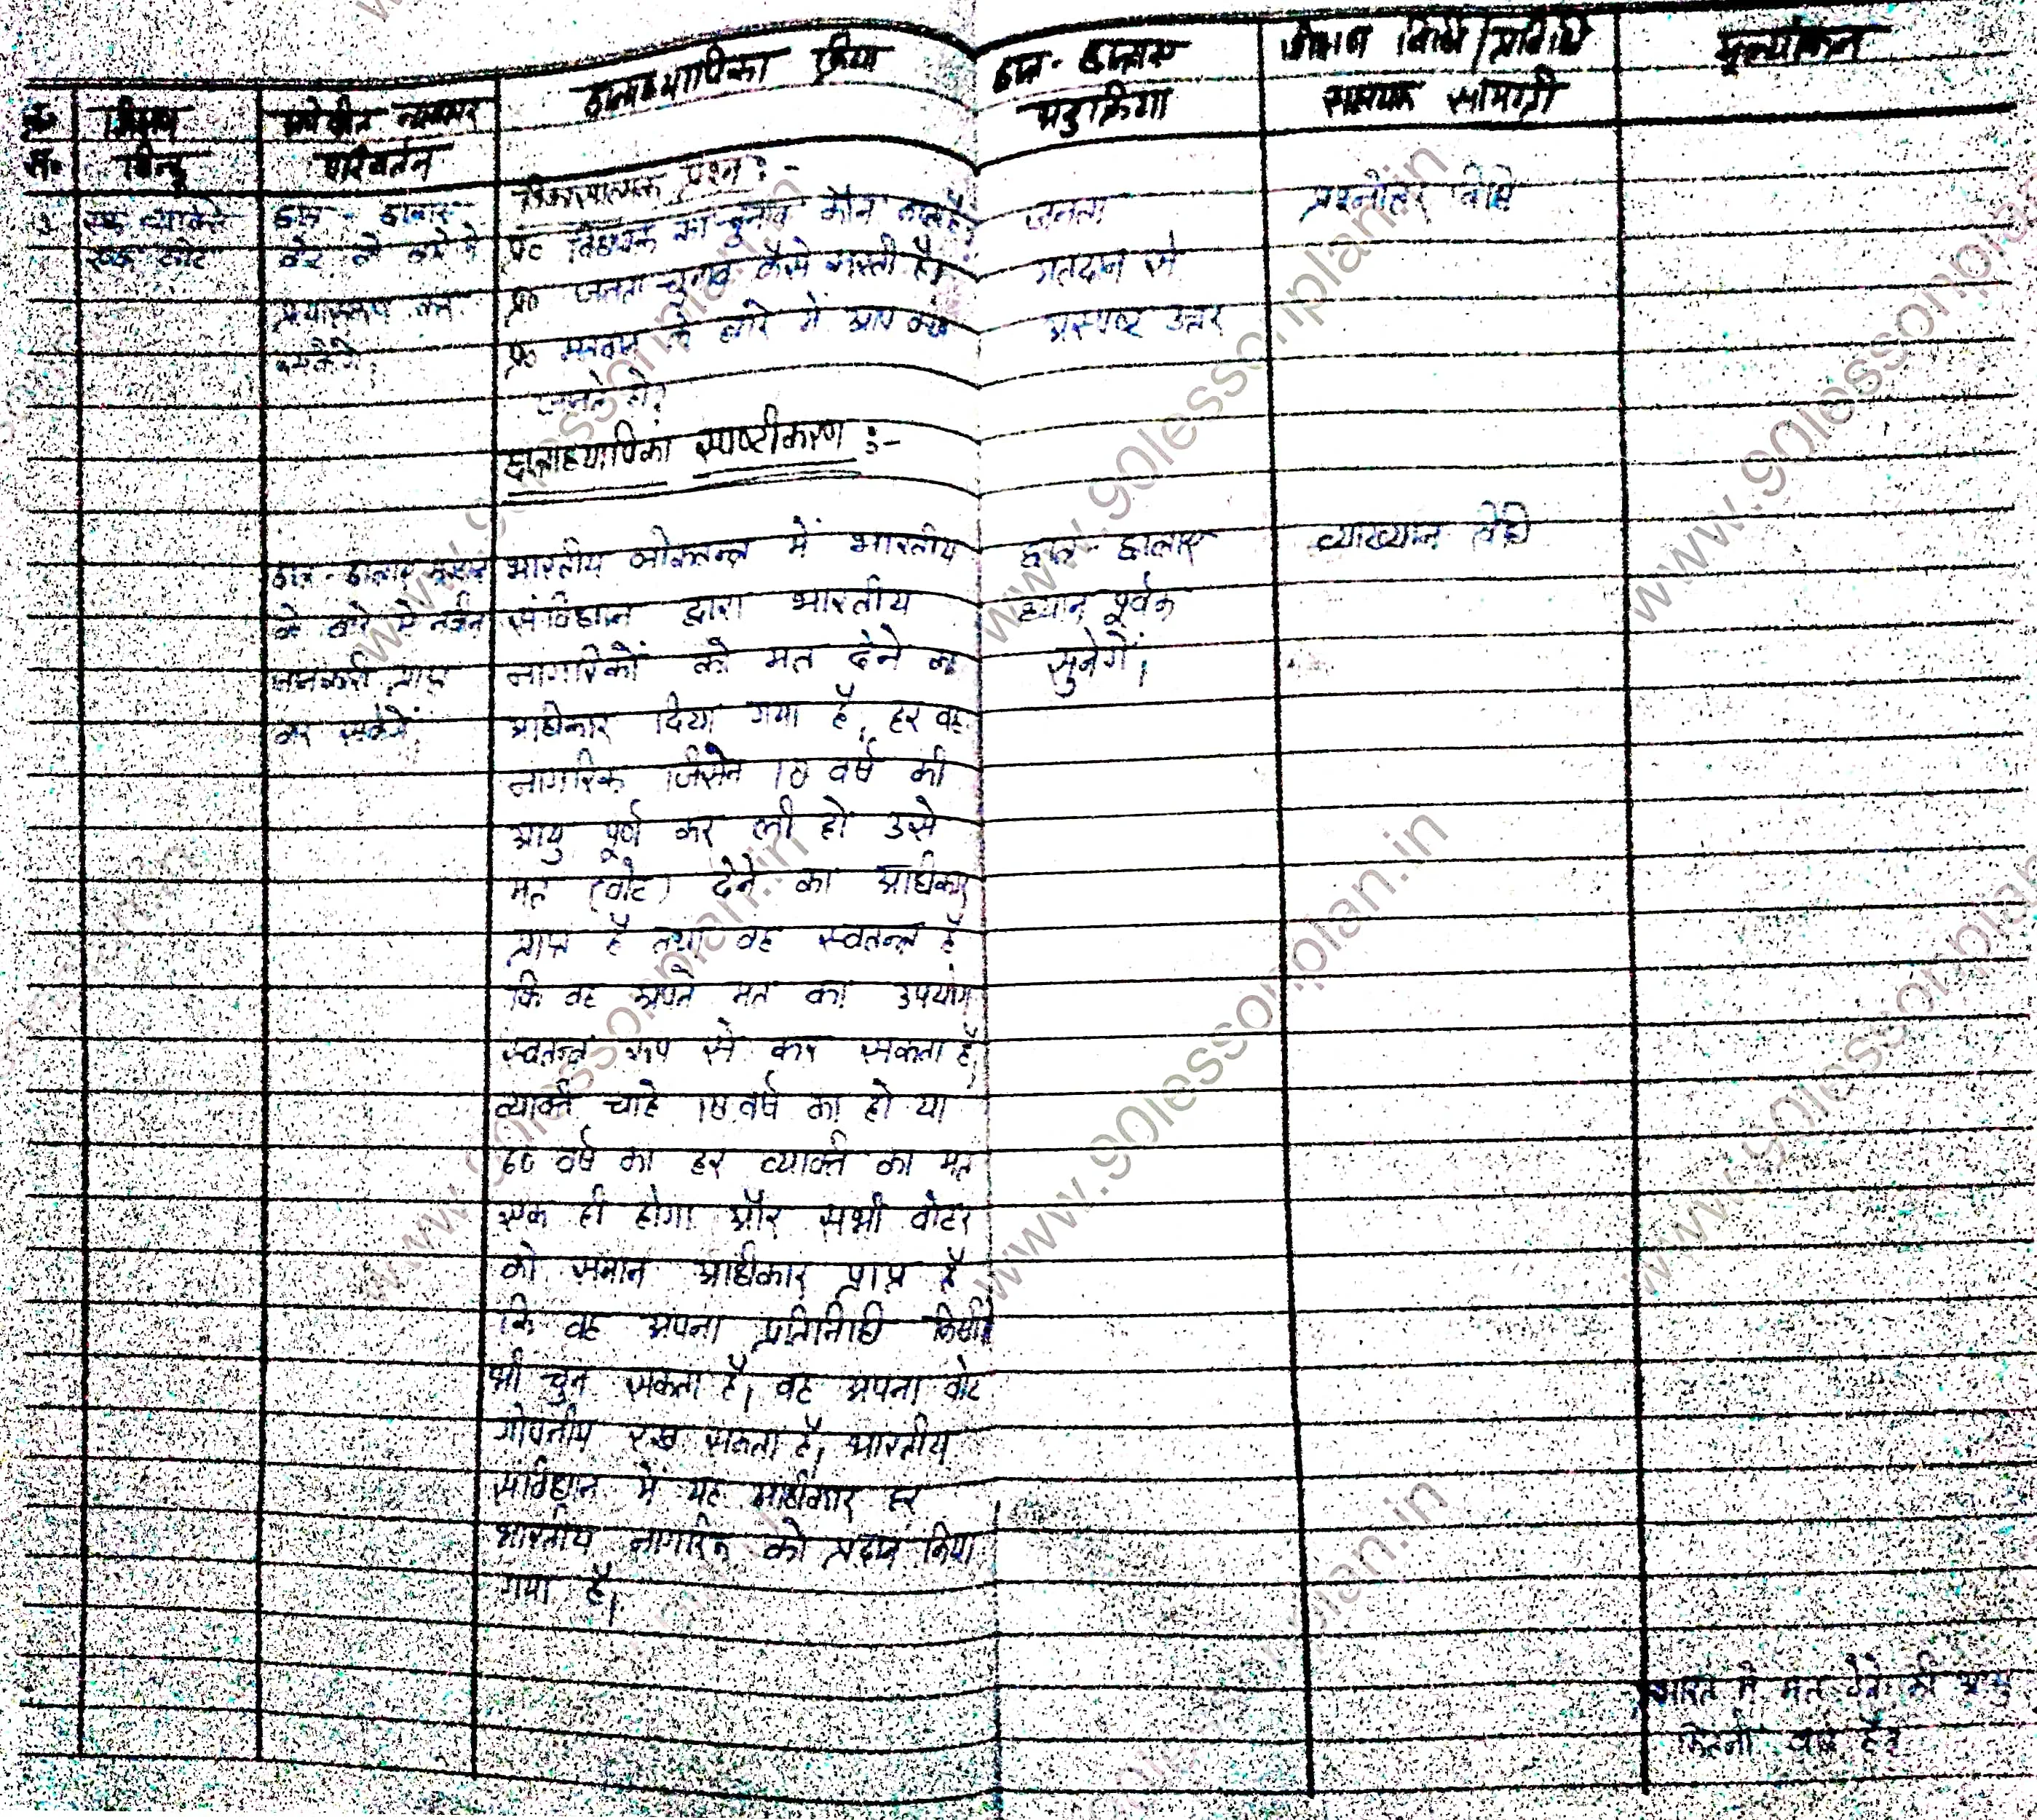 क्र० शिक्षण अपेक्षित व्यवहार छात्राध्यापिका क्रिया छात्र-छात्राएं शिक्षण विधि/प्रविधि मूल्यांकन
स० बिन्दू परिवर्तन अनुक्रिया सहायक सामग्री
विकासात्मक प्रश्न :-
एक व्यक्ति छात्र-छात्राएं प्र० विधायक का चुनाव कौन करता है? जनता प्रश्नोत्तर विधि
एक वोट वोट के बारे में प्र० जनता चुनाव कैसे करती है? मतदान से
प्रत्यास्मरण कर प्र० मतदान के बारे में आप क्या अस्पष्ट उत्तर
सकेंगे। जानते हो?
छात्राध्यापिका स्पष्टीकरण :-
छात्र-छात्राएं भारतीय लोकतन्त्र में भारतीय छात्र-छात्राएं व्याख्यान विधि
के बारे में नवीन संविधान द्वारा भारतीय ध्यान पूर्वक
जानकारी प्राप्त नागरिकों को मत देने का सुनेगें।
कर सकेगें अधिकार दिया गया है, हर वह
नागरिक जिसने 18 वर्ष की
आयु पूर्ण कर ली हो उसे
मत (वोट) देने का अधिकार
प्राप्त है तथा वह स्वतन्त्र है
कि वह अपने मत का उपयोग
स्वतन्त्र रूप से कर सकता है,
व्यक्ति चाहे 18 वर्ष का हो या
60 वर्ष का हर व्यक्ति का मत
एक ही होगा और सभी वोटर
को समान अधिकार प्राप्त है
कि वह अपना प्रतिनिधि किसी
भी चुन सकता है, वह अपना वोट
गोपनीय रख सकता है, भारतीय
संविधान में यह अधिकार हर
भारतीय नागरिक को प्रदान किया
गया है,
भारत में मत देने की आयु
कितनी वर्ष है?
www.90lessonplan.in